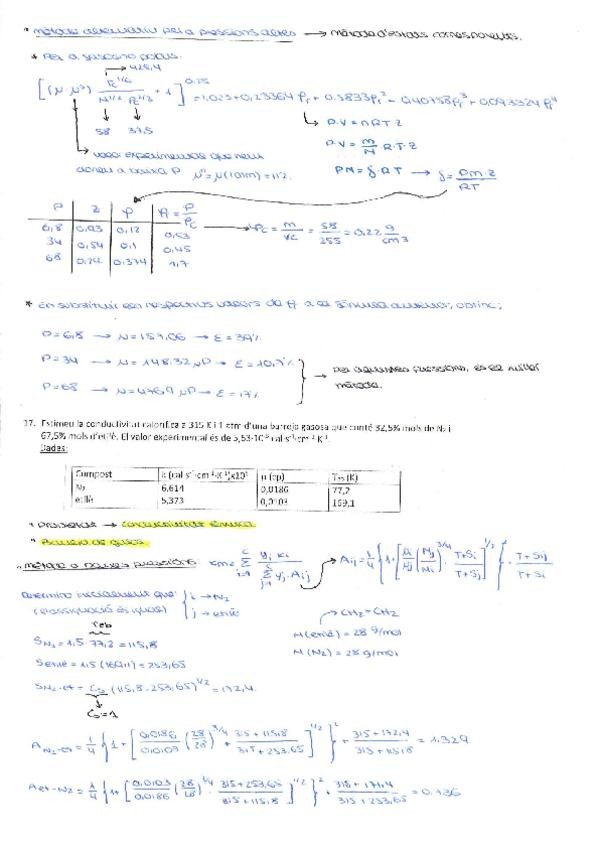 * mètode alternatiu per a pressions altes → mètode d'estats corresponents.
* Per a gasos no polars.
→ 425,4
[(μ-μ°) Pc^1/6 / M^1/2 Pc^2/3 + 1]^0,25 = 1,023 + 0,23364 ρr + 0,5833 ρr² - 0,40758 ρr³ + 0,093324 ρr⁴
58 37,5
P·V = nRT·Z
P·V = m/M R·T·Z
valor experimental que hem
a baixa P μ° = μ(1atm) = 112.
PM = δ·RT → δ = PM·Z / RT
P Z ρ ρr = ρ/ρc
6,8 0,93 0,12 0,53
34 0,54 0,1 0,45
68 0,374 1,7
ρc = m/Vc = 58/255 = 0,22 g/cm3
* En substituir els respectius valors de a la fórmula anterior, obtinc:
P=6,8 → μ = 157,06 → ε = 39%
P=34 → μ = 148.32 μP → ε = 10,7%
P=68 → μ = 476,9 μP → ε = 17%
→ Per aquestes pressions, és el millor
mètode.
37. Estimeu la conductivitat calorífica a 315 K i 1 atm d'una barreja gasosa que conté 32,5% mols de N₂ i
67,5% mols d'etilè. El valor experimental és de 5,53·10⁻⁵ cal·s⁻¹·cm⁻¹·K⁻¹.
Dades:
Compost k (cal·s⁻¹·cm⁻¹·K⁻¹)x10⁵ μ (cp) Teb (K)
N₂ 6,614 0,0186 77,2
etilè 5,373 0,0103 169,1
* Propietat → conductivitat tèrmica.
* Barreja de gasos.
* Mètode a baixes pressions km = Σ yi ki / Σ yj·Aij → Aij = 1/4 {1+[μi/μj (Mj/Mi)^3/4 · T+Si/T+Sj]^1/2}² · T+Sij / T+Si
Determino inicialment que:
(l'assignació és igual)
i → N₂
j → etilè
→ CH₂=CH₂
M(etilè) = 28 g/mol
M(N₂) = 28 g/mol
Teb
S N₂ = 1,5·77,2 = 115,8
S etilè = 1,5 (169,1) = 253,65
S N₂-et = Cs (115,8·253,65)^1/2 = 172,4.
Cs=1
A N₂-et = 1/4 {1+[0,0186/0,0103 (28/28)^3/4 · 315+115,8 / 315+253,65]^1/2}² · 315+172,4 / 315+115,8 = 1.329
A et-N₂ = 1/4 {1+[0,0103/0,0186 (28/28)^3/4 · 315+253,65 / 315+115,8]^1/2}² · 315+171,4 / 315+253,65 = 0.736